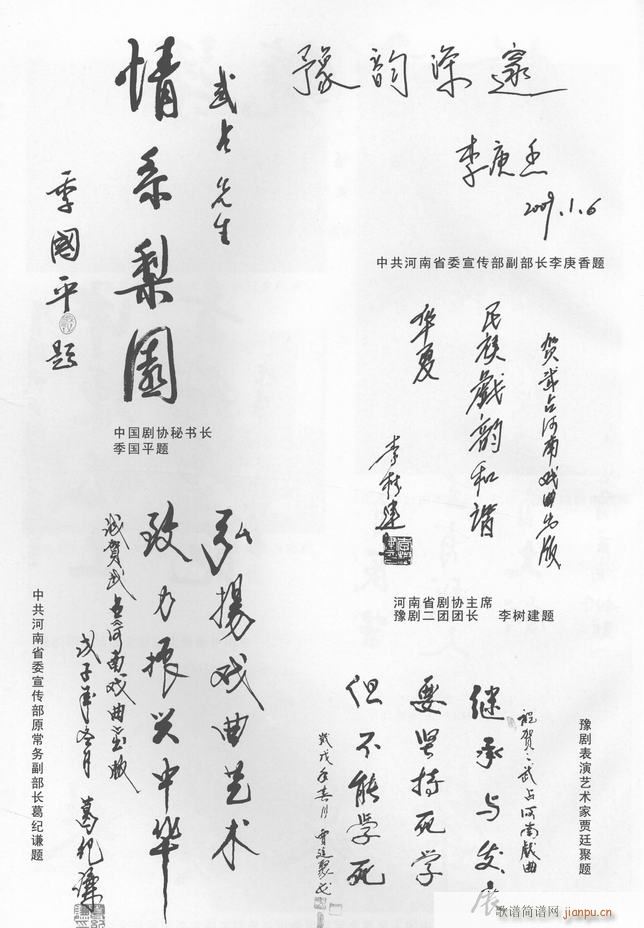 豫韵深邃
李庚香
2009.1.6
中共河南省委宣传部副部长李庚香题
武占先生
情系梨园
季國平题
中国剧协秘书长
季国平题
贺武占河南戏曲出版
民族戲韵和谐
华夏
李树建
河南省剧协主席
豫剧二团团长 李树建题
弘揚戏曲艺术
致力振兴中华
武占河南戏曲出版
戊子年冬月 葛纪谦
中共河南省委宣传部原常务副部长葛纪谦题
祝贺武占河南戲曲
继承与发展
要坚持死学
但不能学死
贾廷聚
豫剧表演艺术家贾廷聚题
歌谱简谱网
jianpu.cn